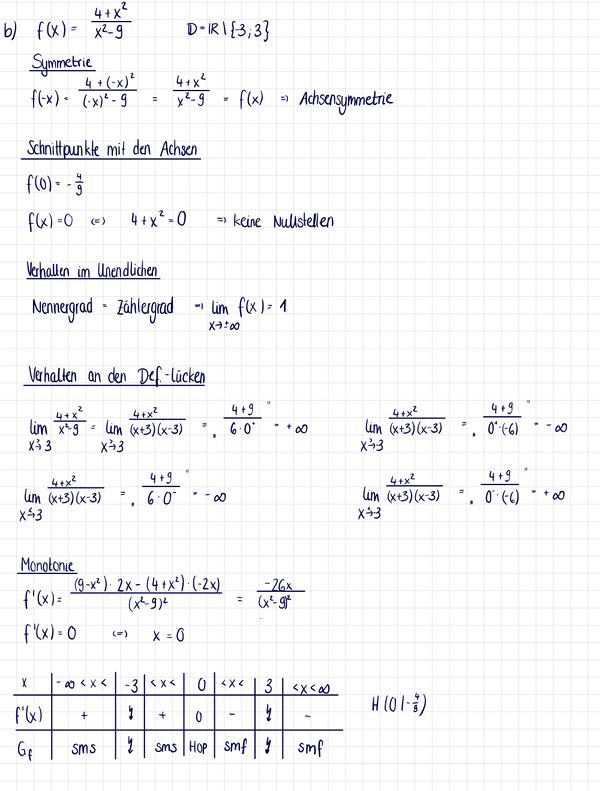 b) f(x) = (4+x²)/(x²-9) D = ℝ \ {-3; 3}
Symmetrie
f(-x) = (4+(-x)²)/((-x)²-9) = (4+x²)/(x²-9) = f(x) => Achsensymmetrie
Schnittpunkte mit den Achsen
f(0) = -4/9
f(x) = 0 <=> 4+x² = 0 => keine Nullstellen
Verhalten im Unendlichen
Nennergrad = Zählergrad => lim x→±∞ f(x) = 1
Verhalten an den Def.-lücken
lim x→3 (4+x²)/(x²-9) = lim x→3 (4+x²)/((x+3)(x-3)) = "(4+9)/(6·0⁺)" = +∞ lim x→-3 (4+x²)/((x+3)(x-3)) = "(4+9)/(0⁺·(-6))" = -∞
lim x→3 (4+x²)/((x+3)(x-3)) = "(4+9)/(6·0⁻)" = -∞ lim x→-3 (4+x²)/((x+3)(x-3)) = "(4+9)/(0⁻·(-6))" = +∞
Monotonie
f'(x) = ((9-x²)·2x-(4+x²)·(-2x))/(x²-9)² = -26x/(x²-9)²
f'(x) = 0 <=> x = 0
x -∞<x< -3 <x< 0 <x< 3 <x<∞
f'(x) + ↯ + 0 - ↯ - H(0|-4/9)
G_f sms ↯ sms HOP smf ↯ smf